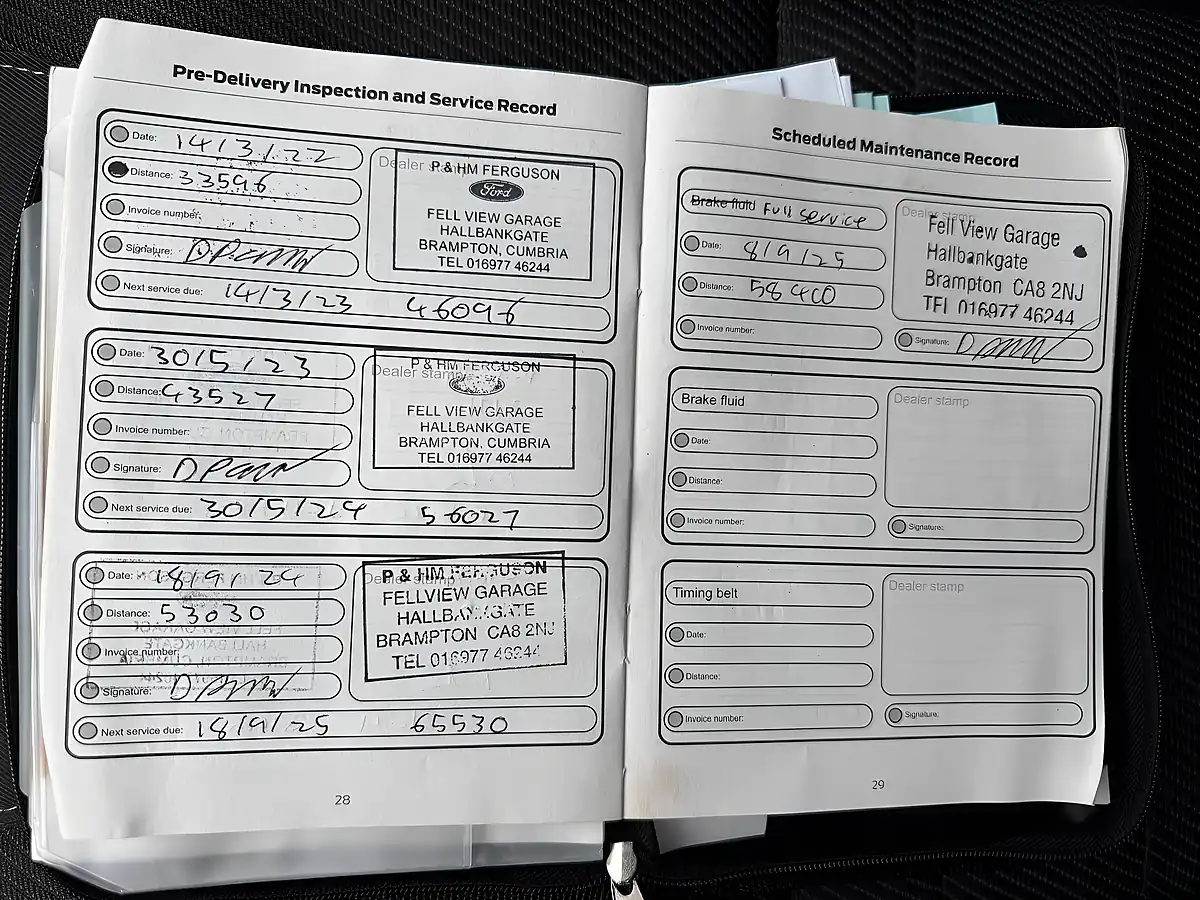 Pre-Delivery Inspection and Service Record
Date: 14/3/22
Distance: 33596
Invoice number:
Signature:
Dealer stamp
P & HM FERGUSON
Ford
FELL VIEW GARAGE
HALLBANKGATE
BRAMPTON, CUMBRIA
TEL 016977 46244
Next service due: 14/3/23 46096
Date: 30/5/23
Distance: 43527
Invoice number:
Signature:
Dealer stamp
P & HM FERGUSON
FELL VIEW GARAGE
HALLBANKGATE
BRAMPTON, CUMBRIA
TEL 016977 46244
Next service due: 30/5/24 56027
Date: 18/9/24
Distance: 53030
Invoice number:
Signature:
Dealer stamp
P & HM FERGUSON
FELLVIEW GARAGE
HALLBANKGATE
BRAMPTON CA8 2NJ
TEL 016977 46244
Next service due: 18/9/25 65530
28
Scheduled Maintenance Record
Brake fluid Full service
Date: 8/9/25
Distance: 58400
Invoice number:
Dealer stamp
Fell View Garage
Hallbankgate
Brampton CA8 2NJ
TEL 016977 46244
Signature:
Brake fluid
Date:
Distance:
Invoice number:
Dealer stamp
Signature:
Timing belt
Date:
Distance:
Invoice number:
Dealer stamp
Signature:
29